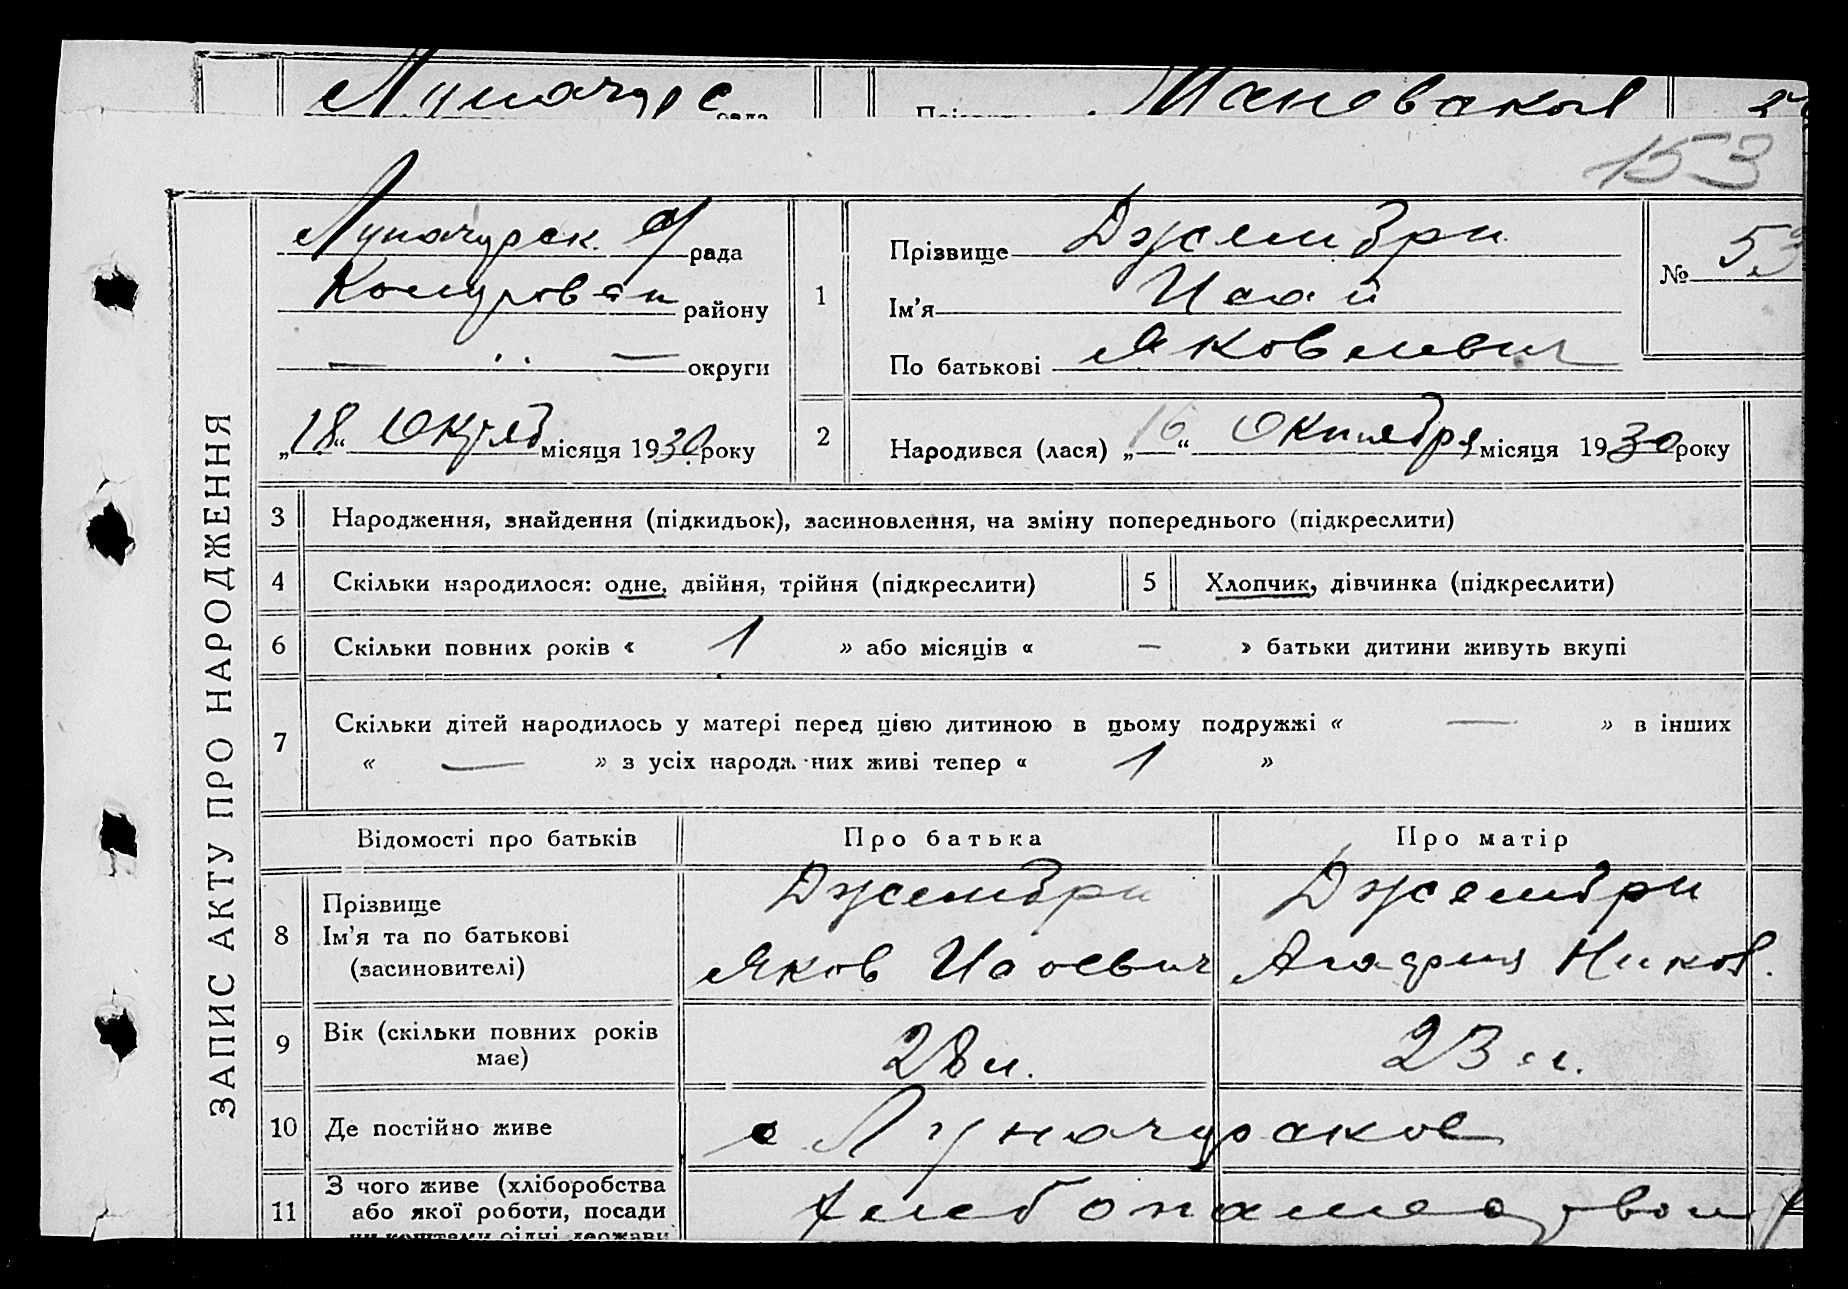 рада Прізвище
153
ЗАПИС АКТУ ПРО НАРОДЖЕННЯ
рада
району
— " — округи
„18“ Октяб місяця 1930 року
1
Прізвище Джембри
Ім'я Исай
По батькові Яковлевич
№ 53
2 Народився (лася) „16“ Октября місяця 1930 року
3 Народження, знайдення (підкидьок), засиновлення, на зміну попереднього (підкреслити)
4 Скільки народилося: одне, двійня, трійня (підкреслити) 5 Хлопчик, дівчинка (підкреслити)
6 Скільки повних років « 1 » або місяців « — » батьки дитини живуть вкупі
7 Скільки дітей народилось у матері перед цією дитиною в цьому подружжі « — » в інших
« — » з усіх народж них живі тепер « 1 »
Відомості про батьків Про батька Про матір
8 Прізвище Джембри Джембри
Ім'я та по батькові Яков Исаевич Агафия Никол.
(засиновителі)
9 Вік (скільки повних років має) 28 л. 23 л.
10 Де постійно живе с
11 З чого живе (хліборобства
або якої роботи, посади